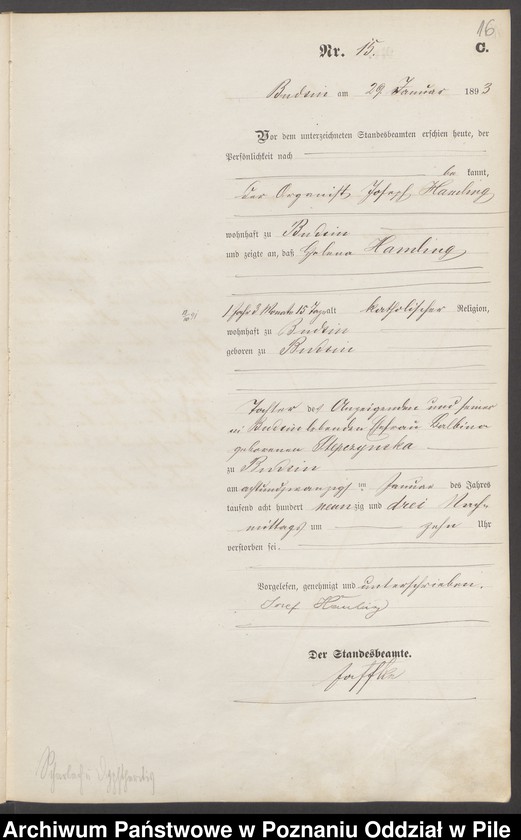 16
Nr. 15.
C.
Budsin am 29 Januar 1893
Vor dem unterzeichneten Standesbeamten erschien heute, der
Persönlichkeit nach
be kannt,
der Organist Joseph Hamling
wohnhaft zu Budsin
und zeigte an, daß Helena Hamling
1 Jahr 2 Monate 15 Tage alt katholischer Religion,
wohnhaft zu Budsin
geboren zu Budsin
Tochter des Anzeigenden und seiner
in Budsin lebenden Ehefrau Balbina
geborenen
zu Budsin
am achtundzwanzigst en Januar des Jahres
tausend acht hundert neunzig und drei Nach-
mittags um zehn Uhr
verstorben sei.
Vorgelesen, genehmigt und unterschrieben.
Josef Hamling
Der Standesbeamte.
Archiwum Państwowe w Poznaniu Oddział w Pile